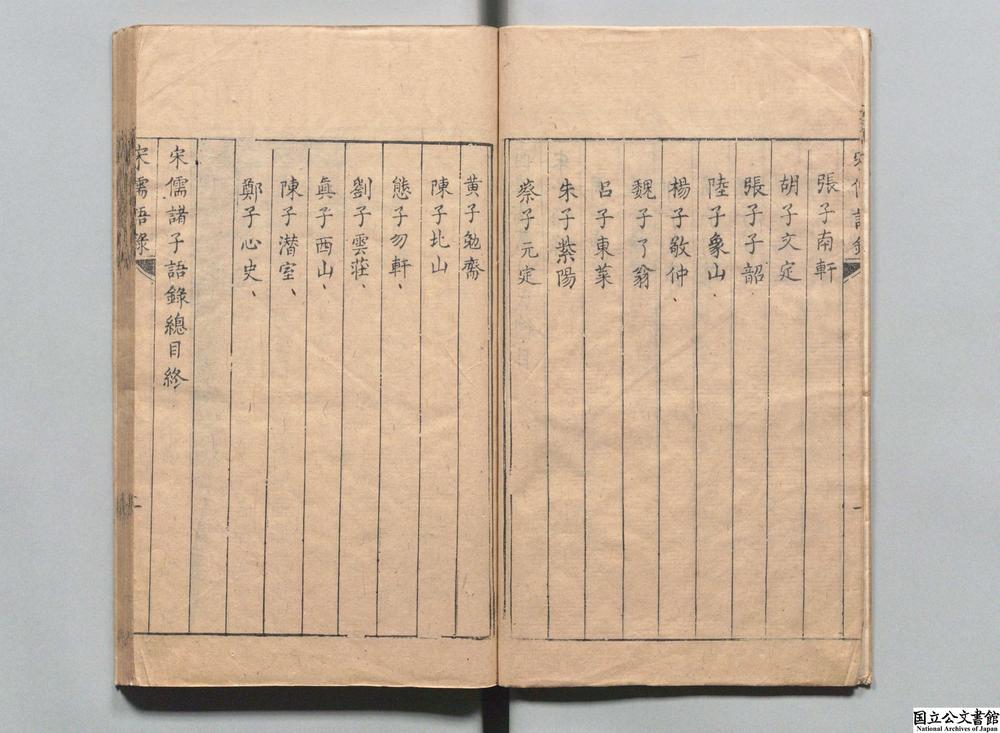 宋儒語錄
一
張子南軒
胡子文定
張子子韶
陸子象山
楊子敬仲
魏子了翁
呂子東萊
朱子紫陽
蔡子元定
黃子勉齋
陳子北山
熊子勿軒
劉子雲莊
眞子西山
陳子潜室
鄭子心史
宋儒諸子語錄總目終
宋儒語錄
国立公文書館
National Archives of Japan